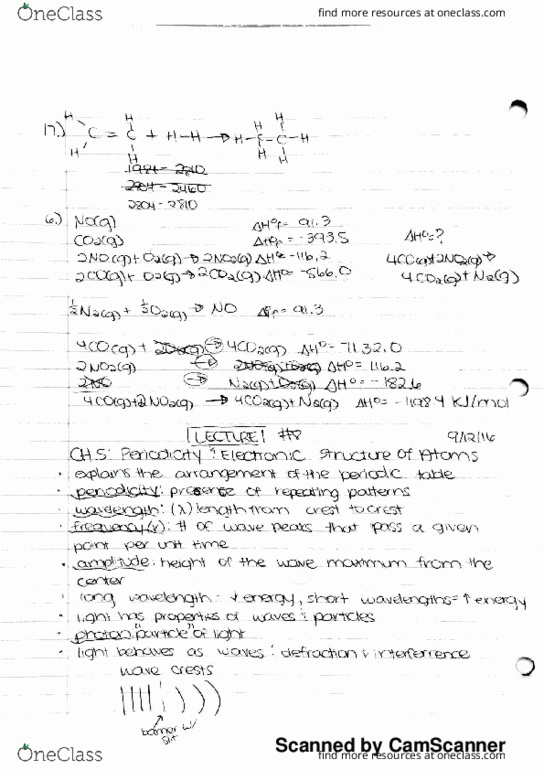 OneClass
find more resources at oneclass.com
17.) H H H
C = C + H-H → H-C-C-H
H H H H
1984 - 2810
2804 - 2460
2804 - 2810
6.) NO(g) ΔH°f = 91.3
CO2(g) ΔH°f = -393.5 ΔH°=?
2NO(g) + O2(g) → 2NO2(g) ΔH°= -116.2 4CO(g)+2NO2(g)→
2CO(g) + O2(g) → 2CO2(g) ΔH°= -566.0 4CO2(g)+N2(g)
½N2(g) + ½O2(g) → NO = 91.3
4CO(g) + 2O2(g) → 4CO2(g) ΔH°= -1132.0
2NO2(g) → 2NO(g)+O2(g) ΔH°= 116.2
2NO → N2(g)+O2(g) ΔH°= -182.6
4CO(g)+2NO2(g) → 4CO2(g)+N2(g) ΔH°= -1198.4 KJ/mol
LECTURE #8 9/12/16
CH 5: Periodicity & Electronic Structure of Atoms
· explains the arrangement of the periodic table
· periodicity: presence of repeating patterns
· wavelength: (λ) length from crest to crest
· frequency (ν): # of wave peaks that pass a given
point per unit time
· amplitude: height of the wave maximum from the
center
· long wavelength = ↓ energy, short wavelengths = ↑ energy
· light has properties of waves & particles
· photon: "particle" of light
· light behaves as waves: defraction & interferrence
wave crests
barrier w/
slit
Scanned by CamScanner
OneClass
find more resources at oneclass.com